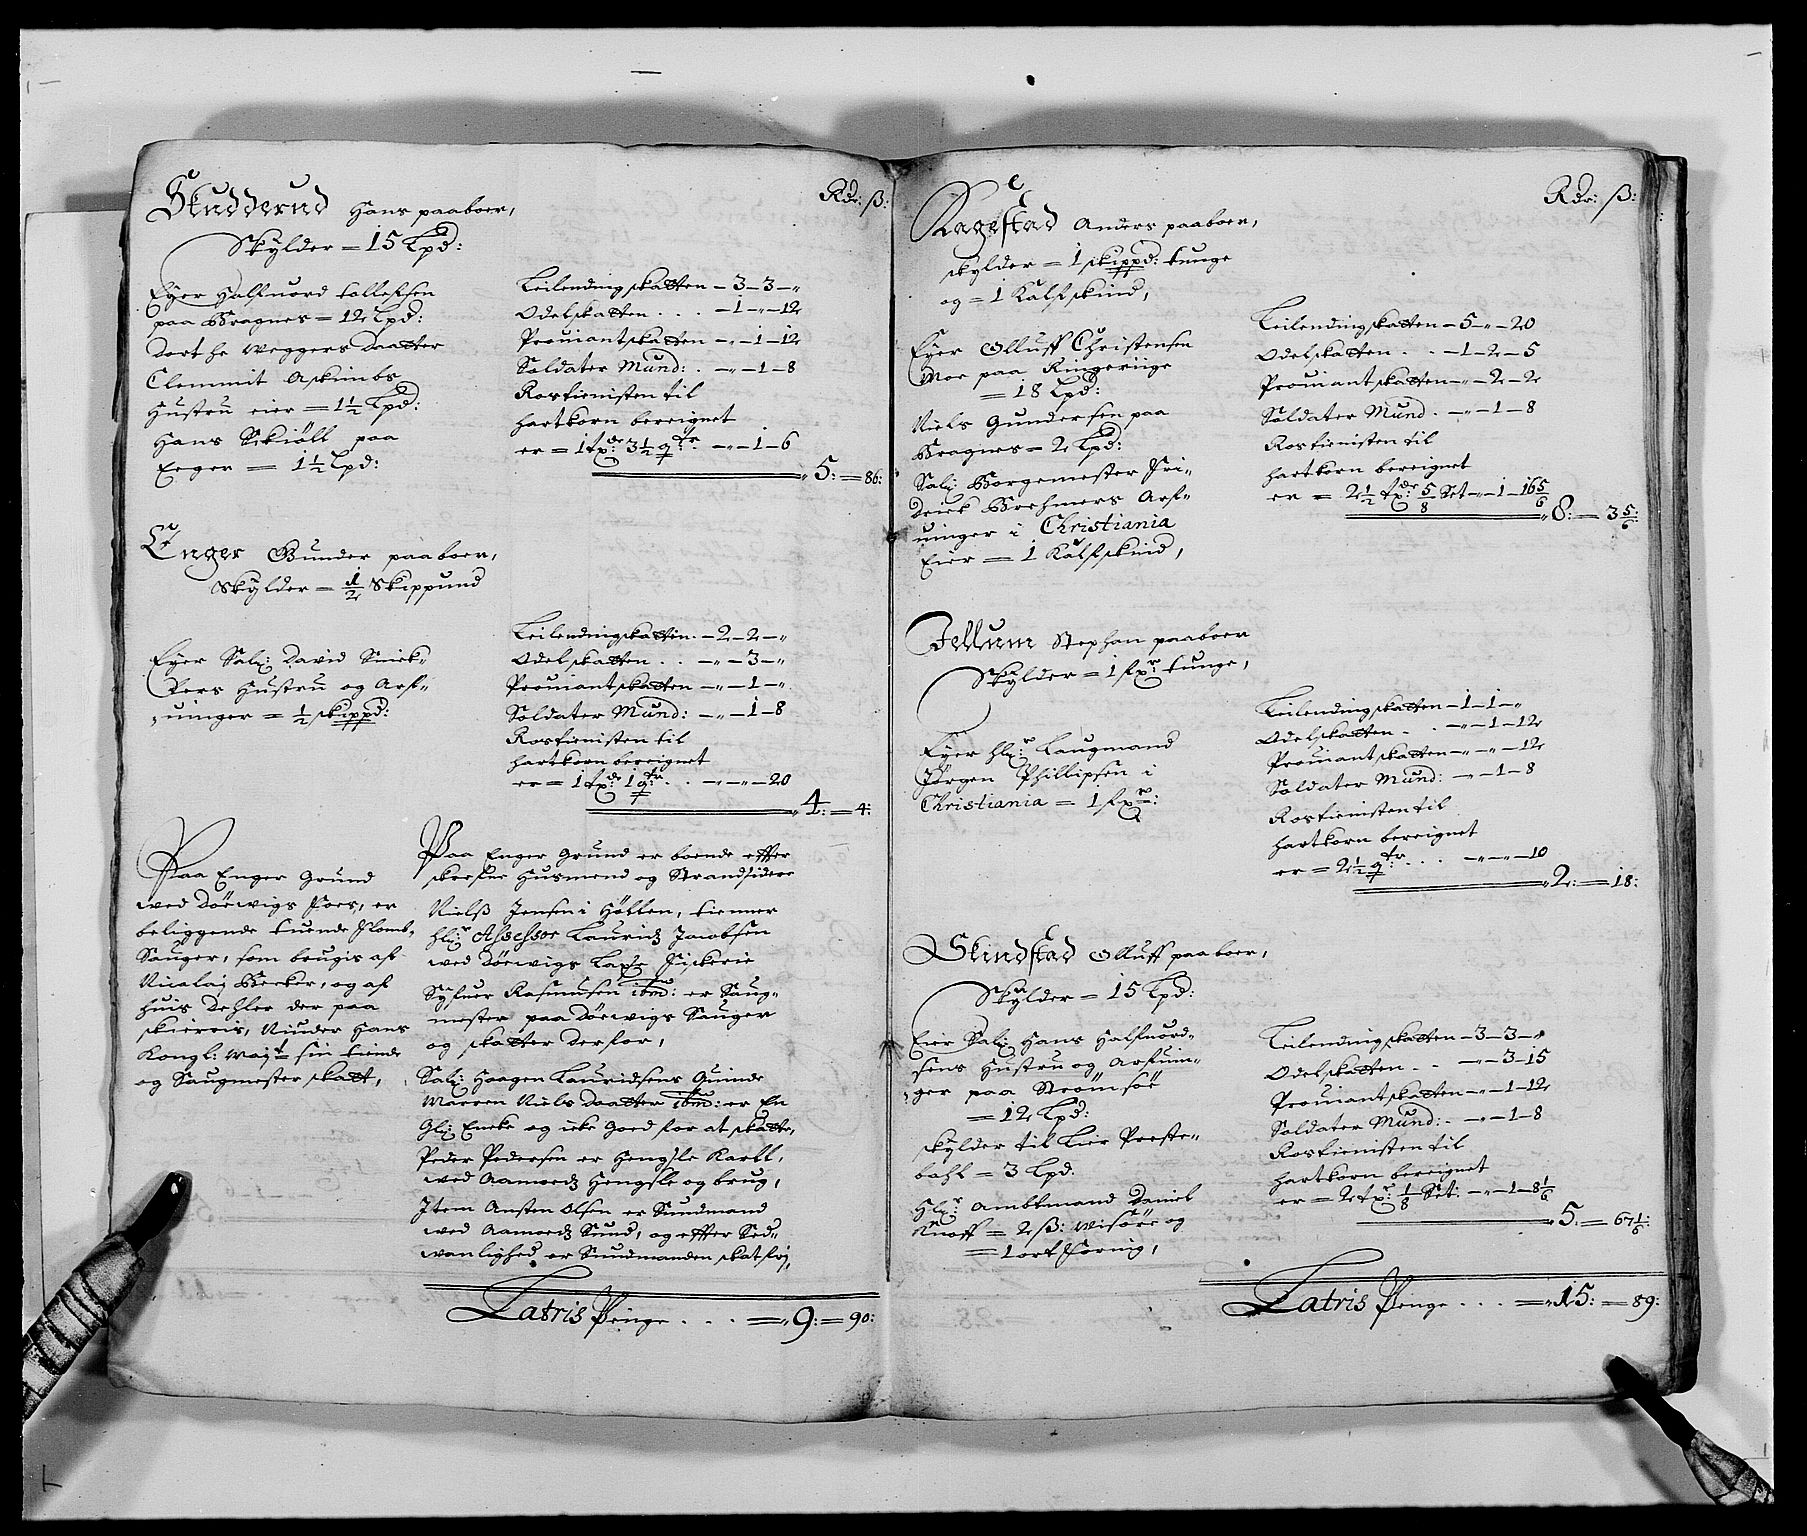 Rdr: ß:
Skudderud Hans paaboer,
Skylder = 15 Lpd:
Eyer Halfuord tollefsen
paa Bragnes = 12 Lpd:
Dorthe Weggers Daatter
Clemmit Askimbs
Hustru eier = 1½ Lpd:
Hans Skiöll paa
Eeger = 1½ Lpd:
Leilendingskatten - 3 - 3 - "
Odelskatten . . . - 1 - " - 12
Prouiantskatten - " - 1 - 12
Soldater Mund: . - " - 1 - 8
Rostienisten til
hartkorn bereignet
er = 1 txde: 3½ qtr: - " - 1 - 6
5: = 86:
Enger Gunder paaboer,
Skylder = ½ Skippund
Eyer Sal: David Sniek-
kers Hustru og Arf-
uinger = ½ skippd:
Leilendingskatten. - 2 - 2 - "
Odelskatten . . - " - 3 - "
Prouiantskatten - " - 1 - "
Soldater Mund: - " - 1 - 8
Rostienisten til
hartkorn bereignet
er = 1 txde 1 qtr: . . - " - " - 20
4: = 4:
Paa Enger Grund
wed Döewigs Foes, er
beliggende tuende Flomb-
Sauger, som brugis af
Nicolaj Becker, og af
huis Dehler der paa
skierris, Niuder Hans
Kongl: Mayt sin tiende
og Saugmester skatt,
Paa Enger Grund er boende effter
skrefne Husmend og Strandsidere
Nielß Jensen i Hötten, tienner
hlr: Assessor Lauridz Jacobsen
wed Döewigs Laxe Fiskerie
Syfuer Rasmusen ibm: er Saug-
mester paa Döewigs Sauger
og skatter derfor,
Sal: Haagen Lauridsens Quinde
Marren Niels Daatter ibm: er En
Gl: Encke og icke goed for at skatte,
Peder Pedersen er Hengsle Karll,
wed Aamodz Hengsle og brug,
Item Ansten Olsen er Sundmand
wed Aamodz Sund, og effter Sed-
wanlighed er Sundmanden skatfrj,
Latris Penge . . . = " 9: = 90:
Rdr: ß:
Kagestad Anders paaboer,
skylder = 1 skippd: tunge
og = 1 Kalfskind,
Eyer Olluff Christensen
Moe paa Ringeriige
= 18 Lpd:
Niels Gundersen paa
Bragnes = 2 Lpd:
Sal: Borgemester Fri-
derick Brehmers Arf-
uinger i Christiania
Eier = 1 Kalfskind,
Leilendingskatten - 5 - " - 20
Odelskatten . . - 1 - 2 - 5
Prouiantskatten - " - 2 - 2
Soldater Mund . - " - 1 - 8
Rostienisten til
hartkorn bereignet
er = 2½ txde: 5/8 Set - " - 1 - 16 5/6
8: = 3 5/6:
Jellum Stephan paaboer
Skylder = 1 fxr: tunge,
Eyer hlr: Laugmand
Jörgen Phillipsen i
Christiania = 1 fxr:
Leilendingskatten - 1 - 1 - "
Odelskatten . . - " - 1 - 12
Prouiantskatten - " - " - 12
Soldater Mund: - " - 1 - 8
Rostienisten til
hartkorn bereignet
er = 2½ qtr . . . - " - " - 10
2: = 18:
Skindstad Olluff paaboer,
Skylder = 15 Lpd:
Eier Sal: Hans Halfuord-
sens Hustru og Arfuin-
ger paa Strömsöe
= 12 Lpd:
skylder til Lier Preste-
bohl = 3 Lpd.
Hlr: Ambtmand Daniel
Knoff = 2 ß: wisöre og
= 1 ort förnig,
Leilendingskatten - 3 - 3 - "
Odelskatten . . - " - 3 - 15
Prouiantskatten - " - 1 - 12
Soldater Mund: . - " - 1 - 8
Rostienisten til
hartkorn bereignet
er = 2 txr: 1/8 Set: - " - 1 - 8 1/6
5: = 67 1/6:
Latris Penge . . . = " 15: = 89: